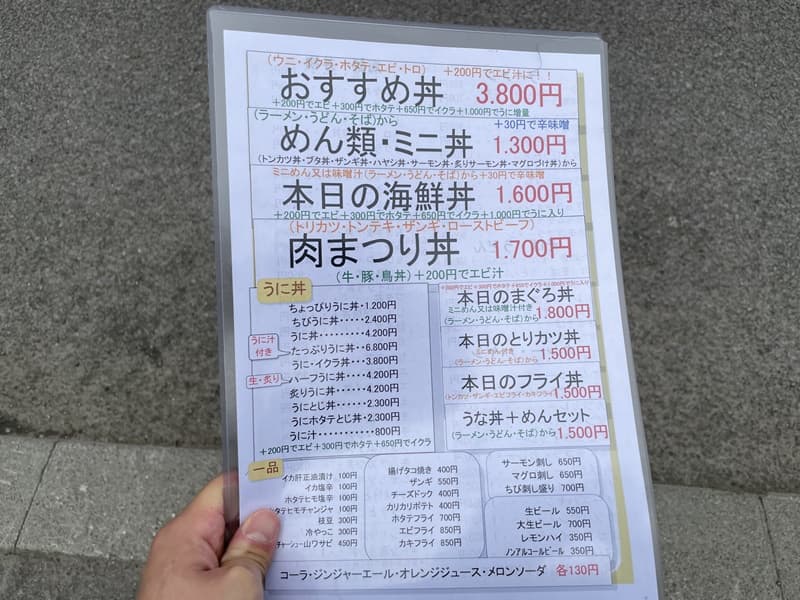 (ウニ・イクラ・ホタテ・エビ・トロ) +200円でエビ汁に!!
おすすめ丼 3.800円
+200円でエビ+300円でホタテ+650円でイクラ+1.000円でうに増量
(ラーメン・うどん・そば)から +30円で辛味噌
めん類・ミニ丼 1.300円
(トンカツ丼・ブタ丼・ザンギ丼・ハヤシ丼・サーモン丼・炙りサーモン丼・マグロづけ丼)から
ミニめん又は味噌汁(ラーメン・うどん・そば)から+30円で辛味噌
本日の海鮮丼 1.600円
+200円でエビ+300円でホタテ+650円でイクラ+1.000円でうに入り
(トリカツ・トンテキ・ザンギ・ローストビーフ)
肉まつり丼 1.700円
(牛・豚・鳥丼)+200円でエビ汁
うに丼
ちょっぴりうに丼・1.200円
ちびうに丼・・・・・2.400円
うに丼・・・・・・・・・4.200円
うに汁付き
たっぷりうに丼・・6.800円
うに・イクラ丼・・・3.800円
生・炙り
ハーフうに丼・・・・4.200円
炙りうに丼・・・・・4.200円
うにとじ丼・・・・・2.300円
うにホタテとじ丼・2.300円
うに汁・・・・・・・・・800円
+200円でエビ+300円でホタテ+650円でイクラ
+200円でエビ+300円でホタテ+650円でイクラ+1.000円でうに入り
本日のまぐろ丼
ミニめん又は味噌汁付き
(ラーメン・うどん・そば)から 1.800円
本日のとりカツ丼
ミニめん付き
(ラーメン・うどん・そば)から 1.500円
本日のフライ丼
(トンカツ・ザンギ・エビフライ・カキフライ) 1.500円
うな丼+めんセット
(ラーメン・うどん・そば)から 1.500円
一品
イカ肝正油漬け 100円
イカ塩辛 100円
ホタテヒモ塩辛 100円
ホタテヒモチャンジャ 100円
枝豆 300円
冷やっこ 300円
チャーシュー山ワサビ 450円
揚げタコ焼き 400円
ザンギ 550円
チーズドック 400円
カリカリポテト 400円
ホタテフライ 700円
エビフライ 850円
カキフライ 850円
サーモン刺し 650円
マグロ刺し 650円
ちび刺し盛り 700円
生ビール 550円
大生ビール 700円
レモンハイ 350円
ノンアルコールビール 350円
コーラ・ジンジャーエール・オレンジジュース・メロンソーダ 各130円